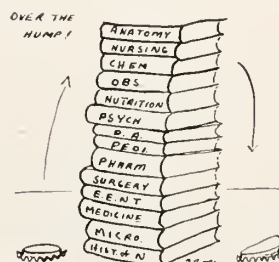 OVER THE
HUMP!
ANATOMY
NURSING
CHEM
OBS
NUTRITION
PSYCH
P. A.
PEDI.
PHARM
SURGERY
E.E.N.T
MEDICINE
MICRO.
HIST. of N